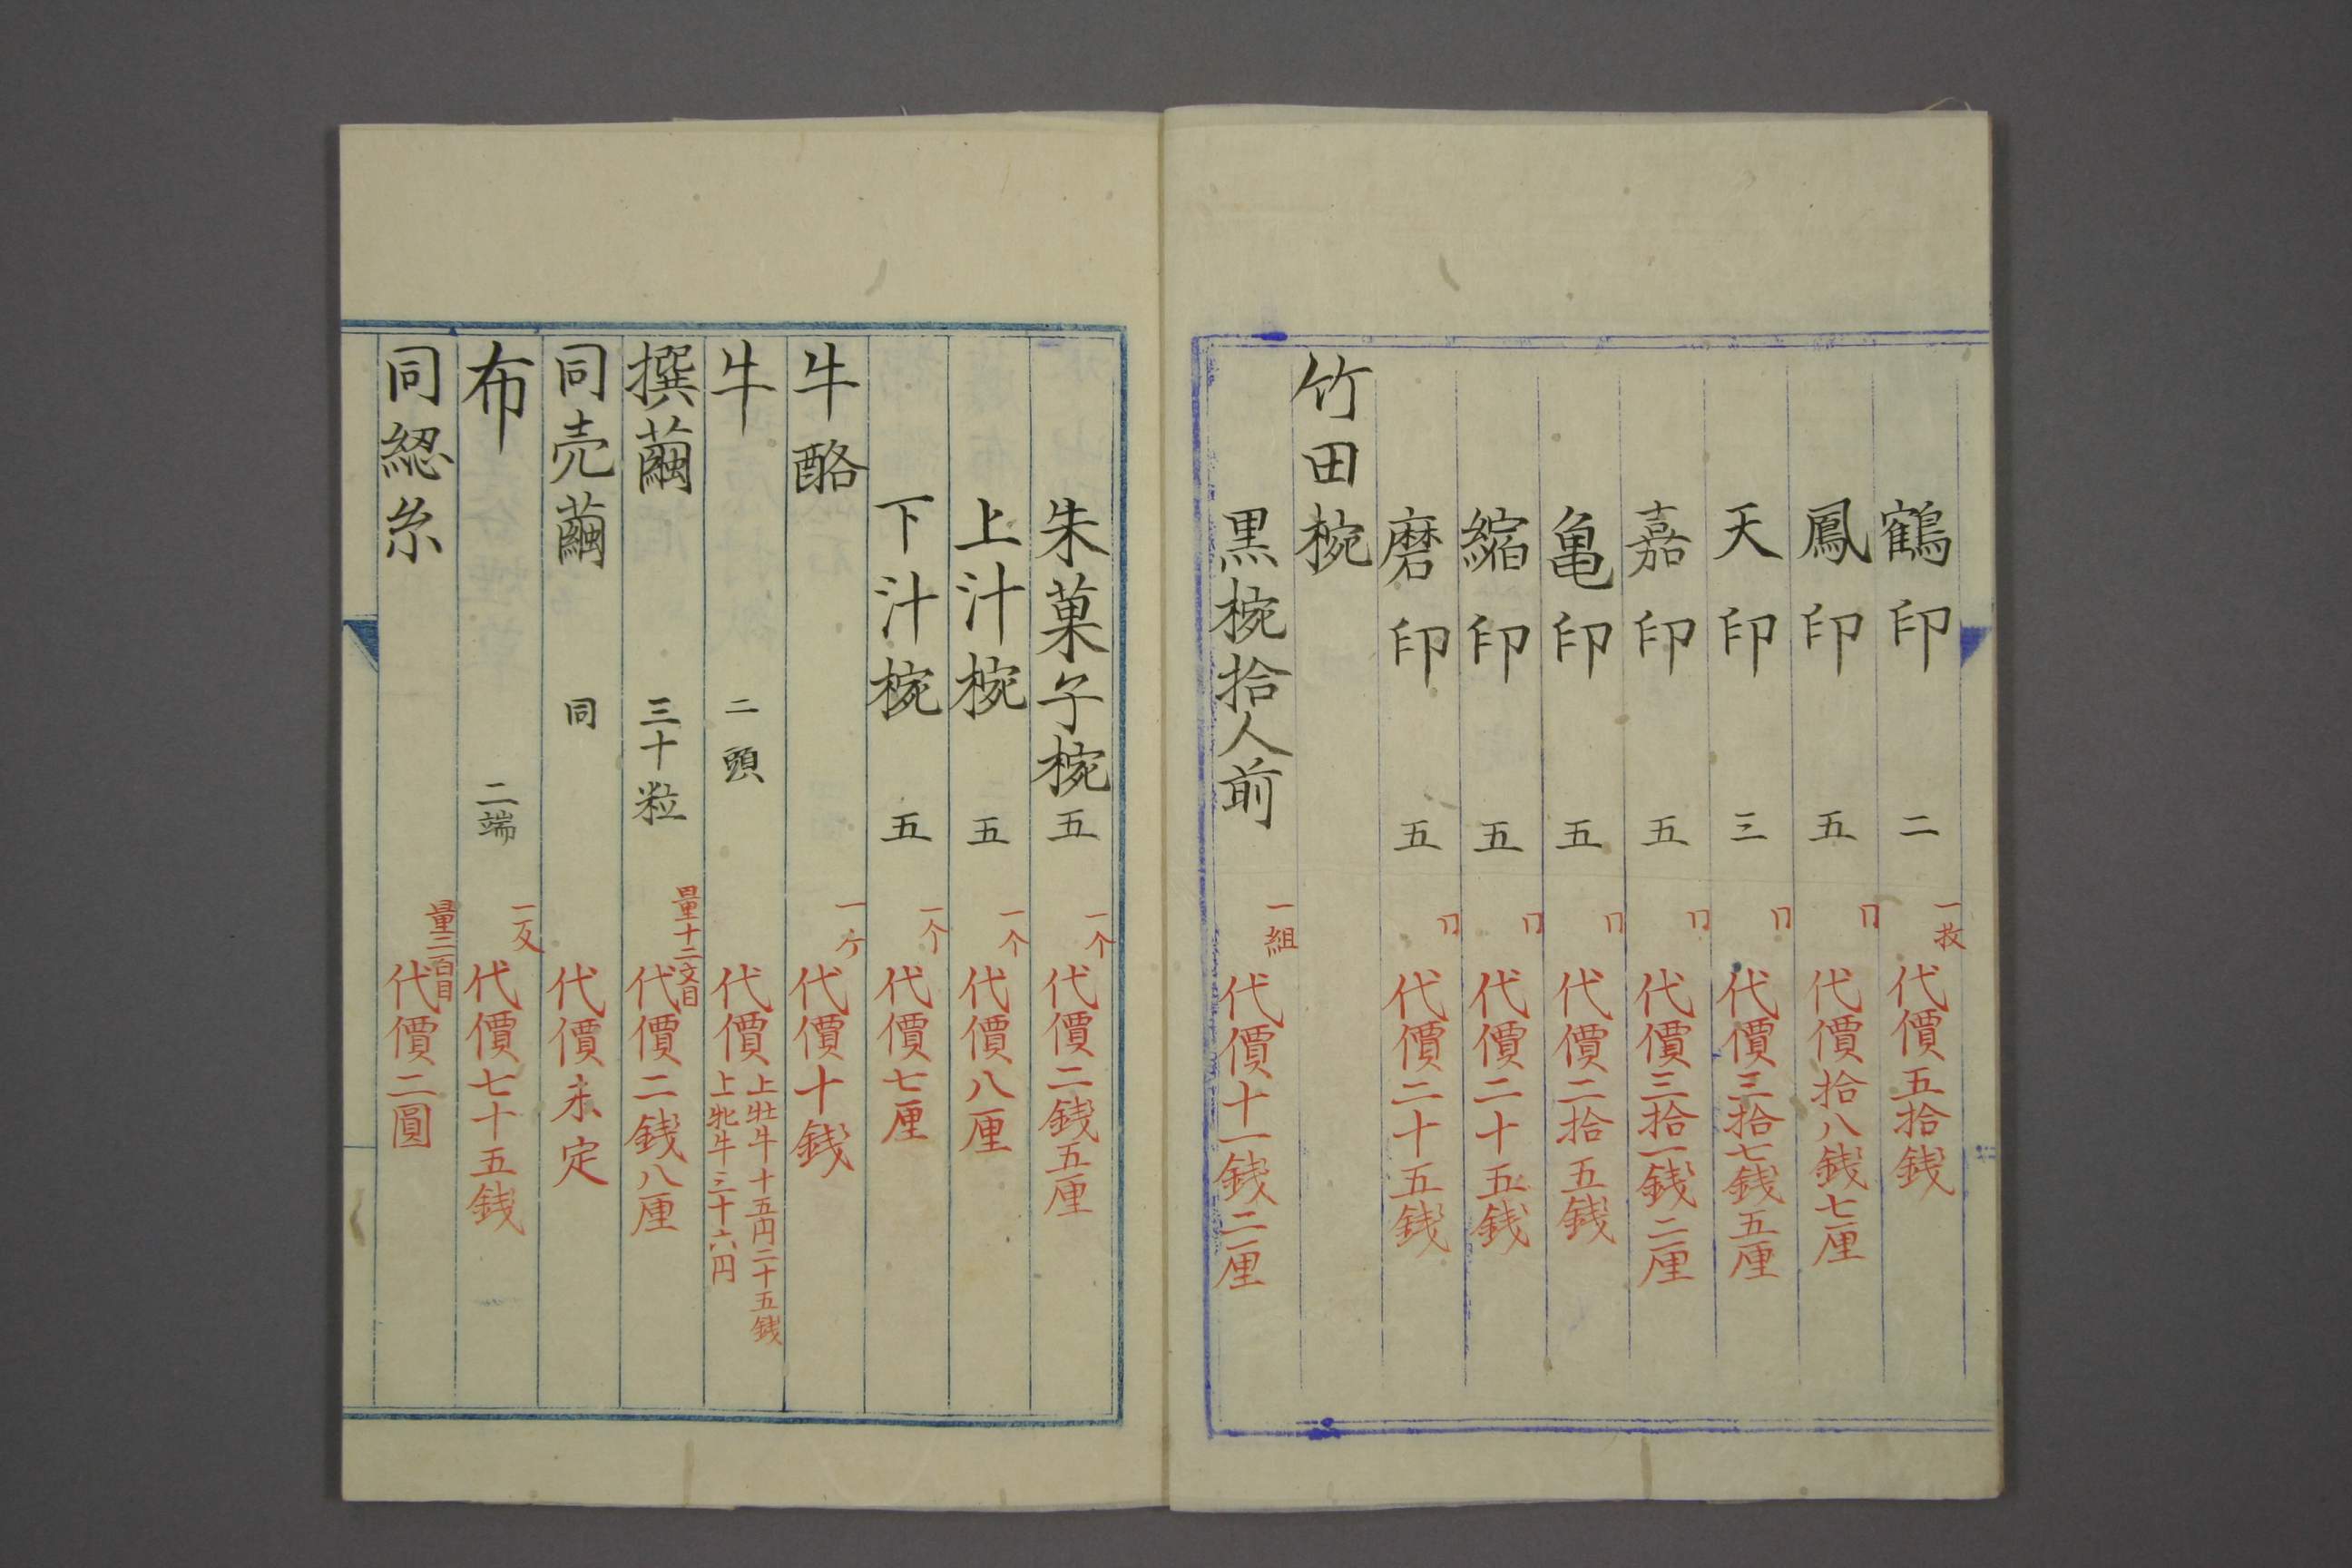 鶴印 二 一枚 代價五拾銭
鳳印 五 〃 代價拾八銭七厘
天印 三 〃 代價三拾七銭五厘
嘉印 五 〃 代價三拾一銭二厘
亀印 五 〃 代價二拾五銭
縮印 五 〃 代價二十五銭
磨印 五 〃 代價二十五銭
竹田椀
黒椀拾人前 一組 代價十一銭二厘
朱菓子椀 五 一个 代價二銭五厘
上汁椀 五 一个 代價八厘
下汁椀 五 一个 代價七厘
牛酪 一ケ 代價十銭
牛 二頭 代價 上牡牛十五円二十五銭
上牝牛三十六円
撰繭 三十粒 量十二文目 代價二銭八厘
同売繭 同 代價未定
布 二端 一反 代價七十五銭
同綛糸 量二百目 代價二圓